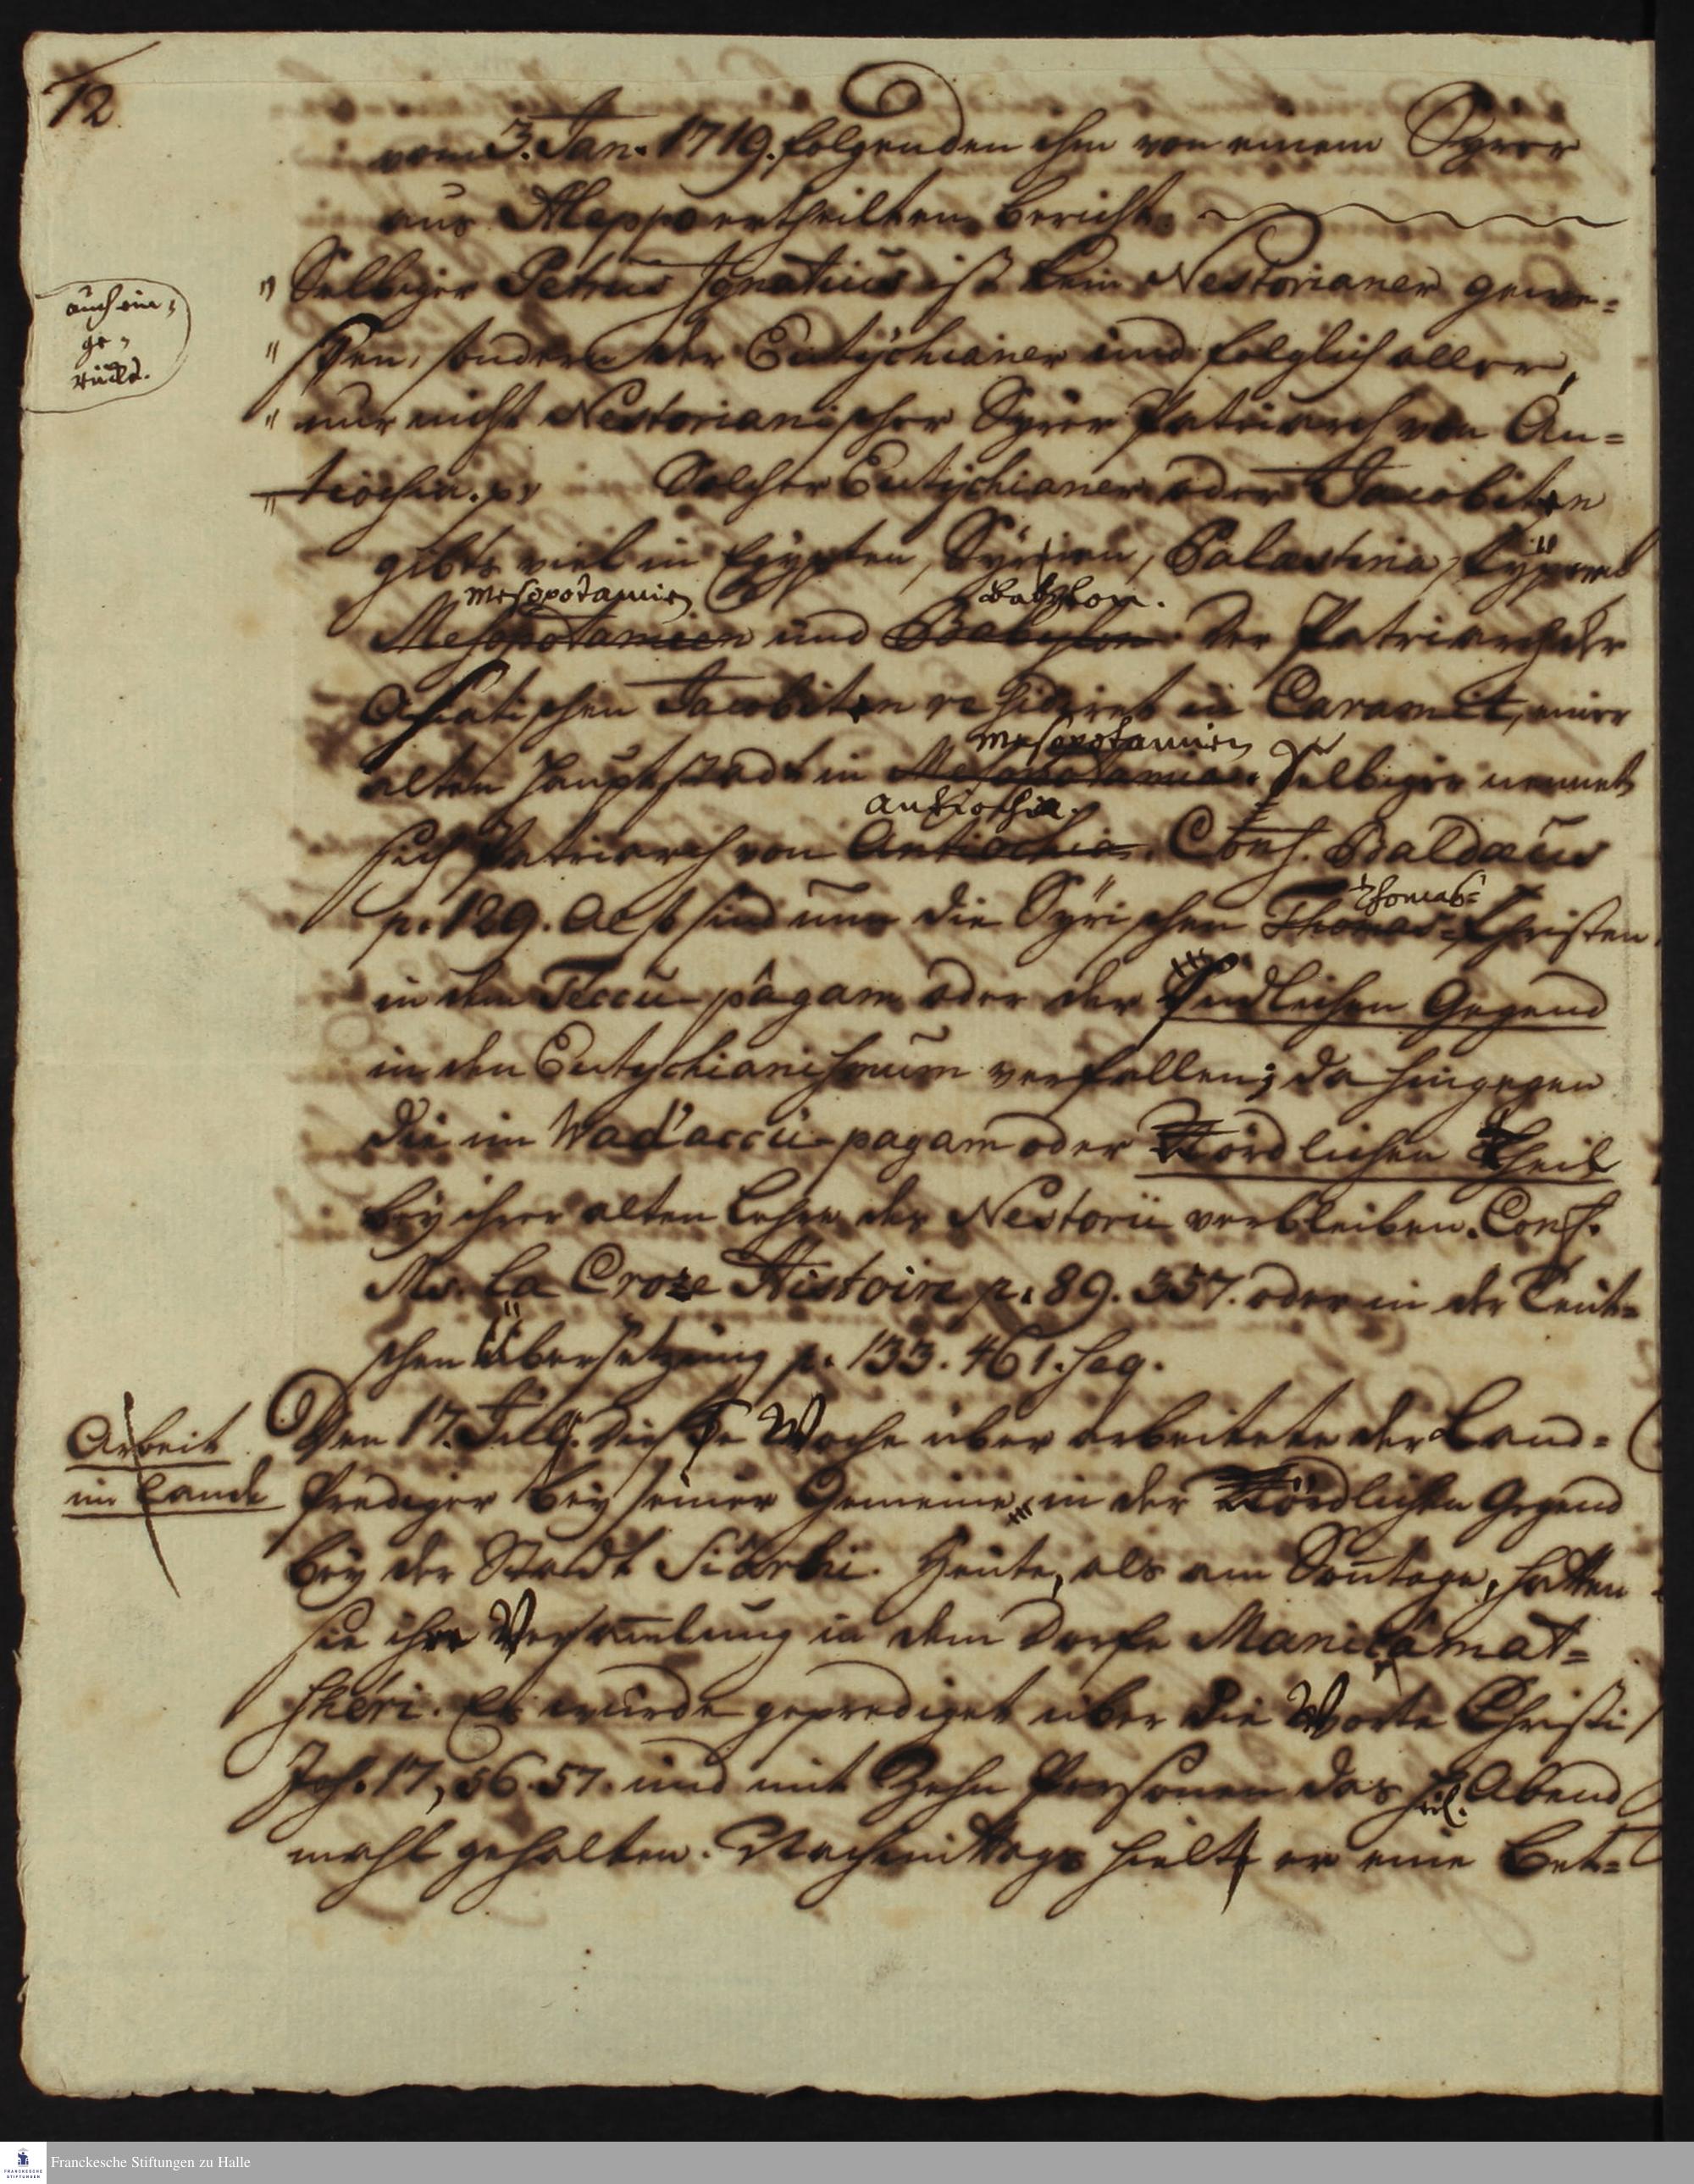 12.
vom 3. Jan. 1719. folgenden ihm von einem Syrer
aus Aleppo ertheilten Bericht.
auch ein,
ge,
rückt.
" Selbiger Petrus Ignatius ist kein Nestorianer gewe=
" sen, sondern der Eutychianer und folglich aller,
" nur nicht Nestorianischer Syrer Patriarch von An=
" tiochia. pp Solcher Eutychianer oder Jacobiten
gibts viel in Egypten, Syrien, Palæstina, Cypern
Mesopotamien Babylon.
Mesopotamien und Babylon. Der Patriarch der
Asiatischen Jacobiten residiret in Caramit, einer
Mesopotamien
alten Hauptstadt in Mesopotamia. Selbiger nennet
Antiochia.
sich Patriarch von Antiochia. Conf. Baldæus
Thomas=
p. 129. Also sind nun die Syrischen Thomas-Christen
in dem Teccu-pâgam oder der südlichen Gegend
in den Eutychianismum verfallen; da hingegen
die im Wad'accu-pagam oder Nördlichen Theil
bey ihrer alten Lehre des Nestorii verbleiben. Conf.
Mr. la Croze Histoire p. 89. 357. oder in der Teut=
schen Übersetzung p. 133. 461. seq.
Arbeit
im Lande
Den 17. Jul. Diese Woche über arbeitete der Land=
Prediger bey seiner Gemeine, in der Nördlichen Gegend
bey der Stadt Siarhü. Heute, als am Sontage, hatten
sie ihre Versamlung in dem Dorfe Manicâmat=
shéri. Es wurde geprediget über die Worte Christi
Joh. 17, 56. 57. und mit Zehn Personen das heil. Abend
mahl gehalten. Nachmittags hielt er eine Bet=
Franckesche Stiftungen zu Halle